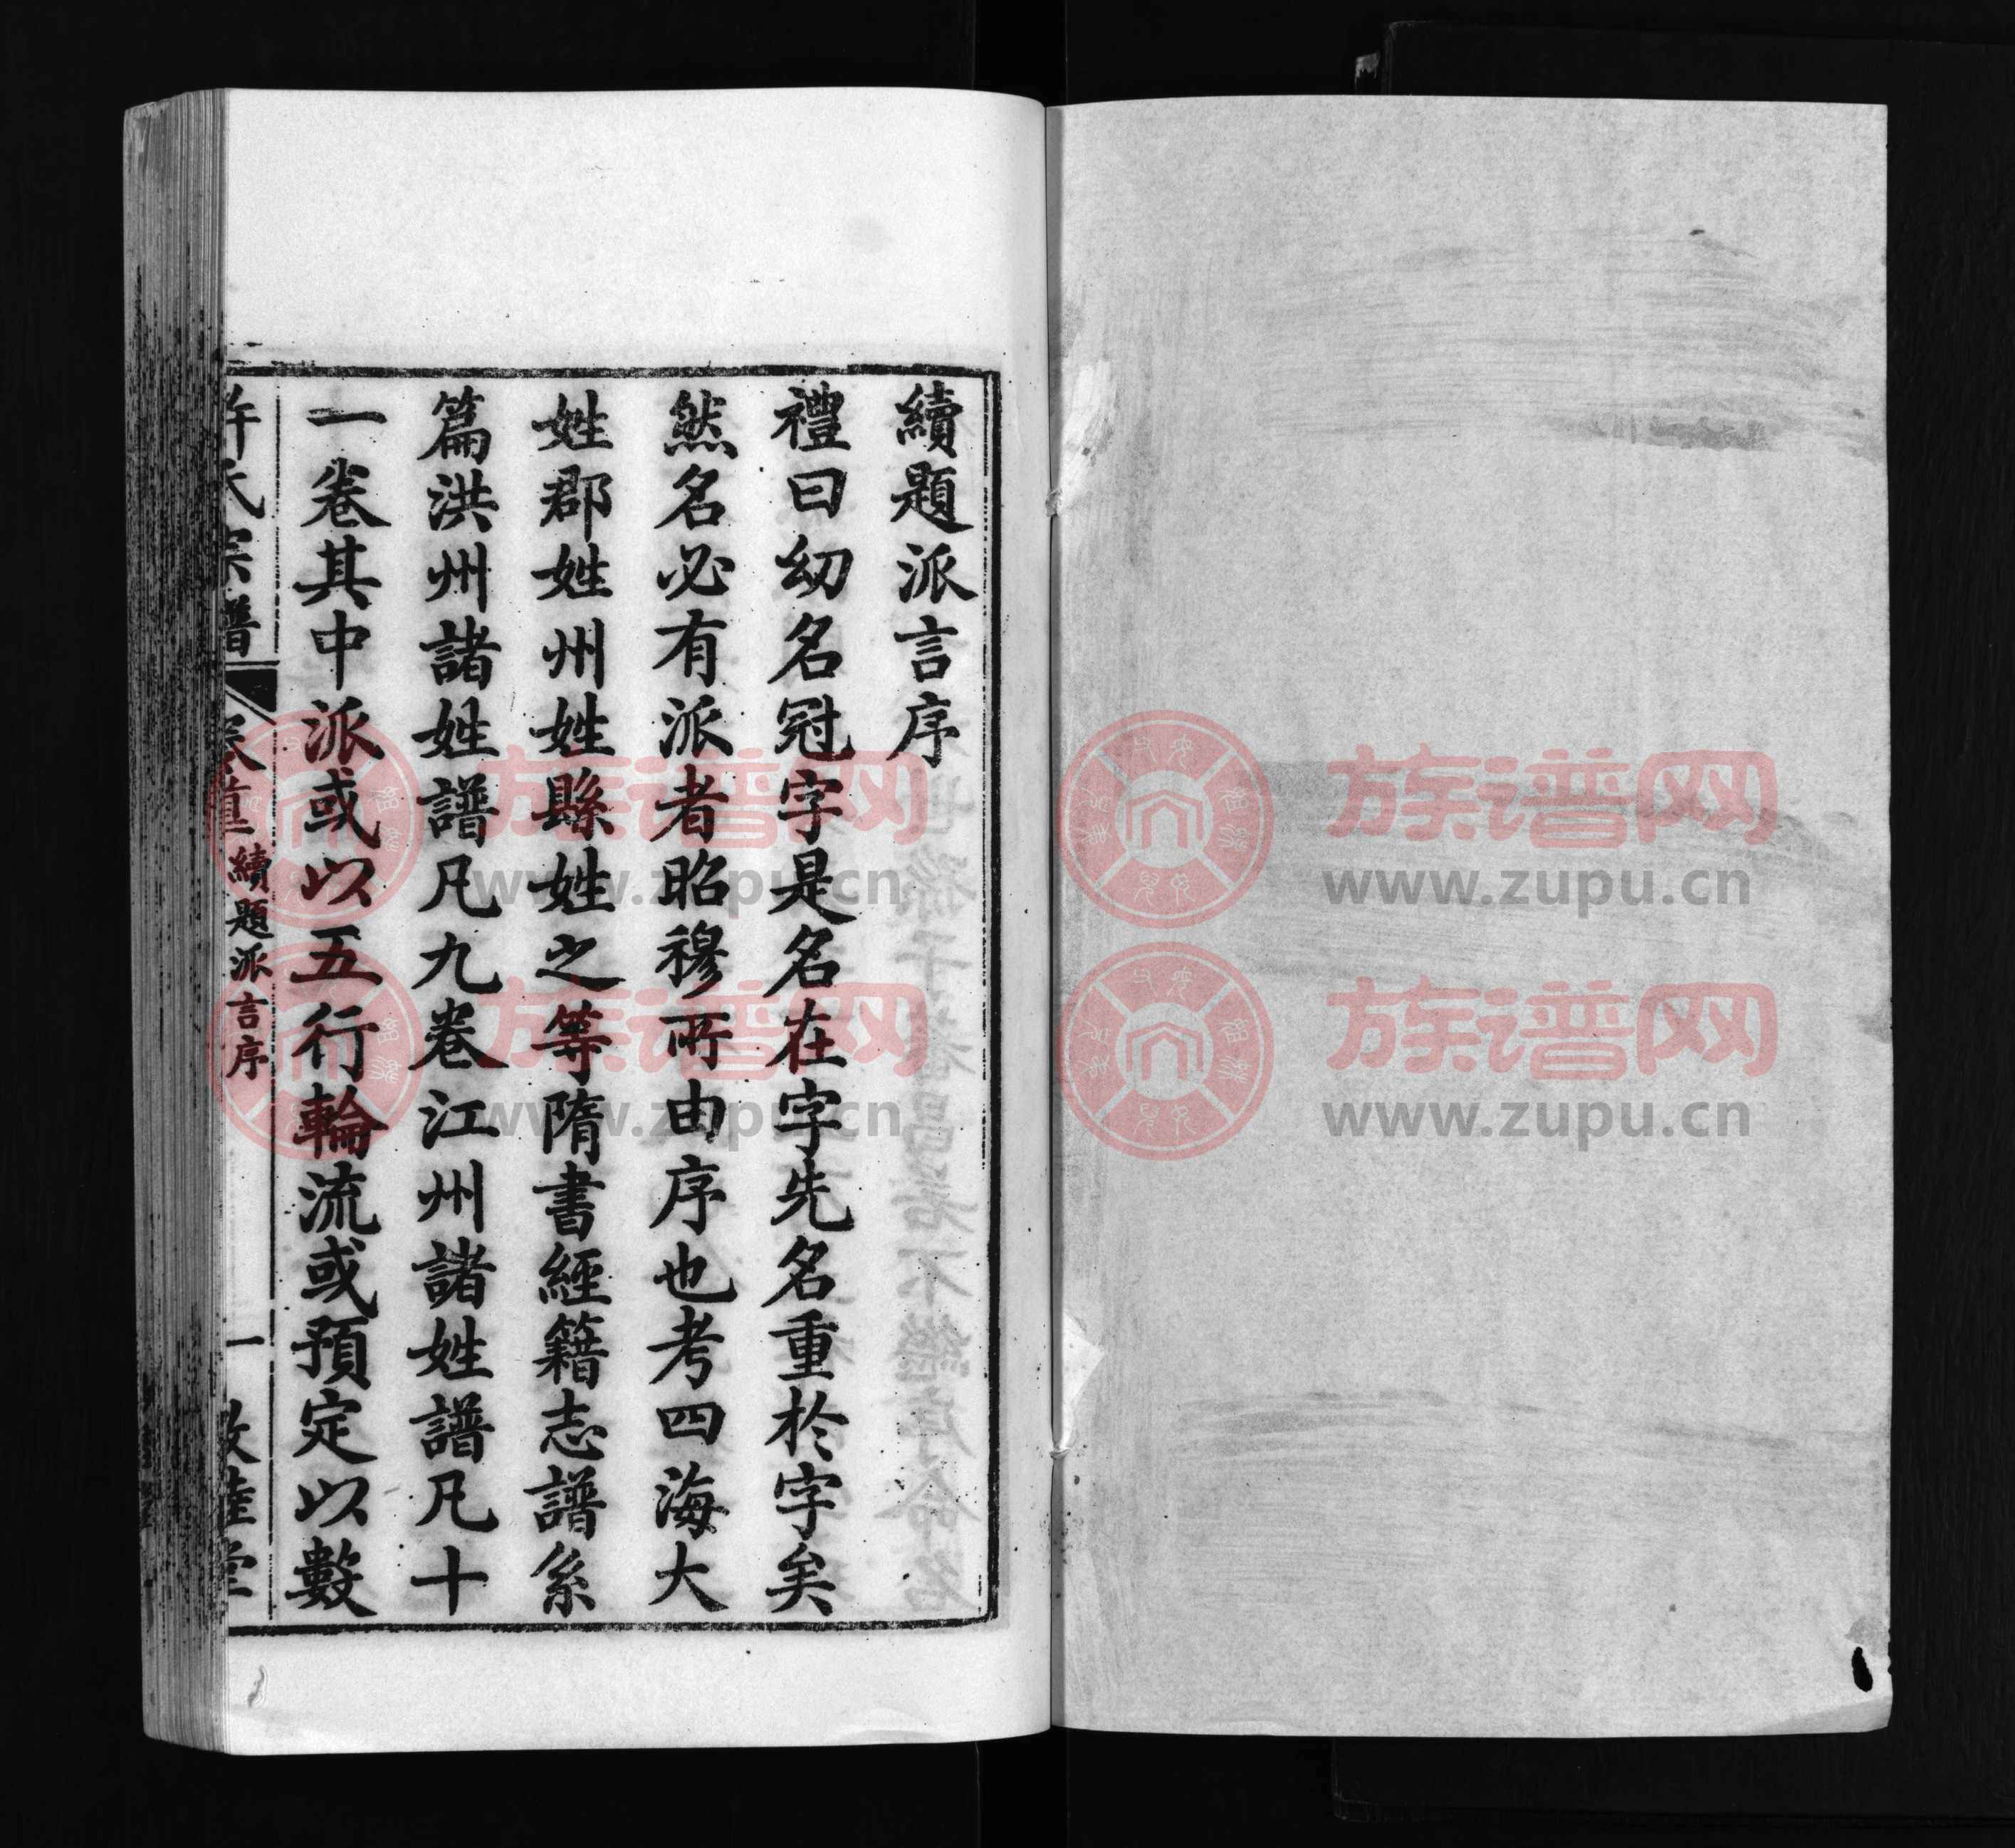 續題派言序
禮曰幼名冠字是名在字先名重於字矣
然名必有派者昭穆所由序也考四海大
姓郡姓州姓縣姓之等隋書經籍志譜系
篇洪州諸姓譜凡九卷江州諸姓譜凡十
一卷其中派或以五行輪流或預定以數
許氏宗譜
卷首 續題派言序
一
敦睦堂
族谱网
www.zupu.cn
族谱网
www.zupu.cn
族谱网
www.zupu.cn
族谱网
www.zupu.cn